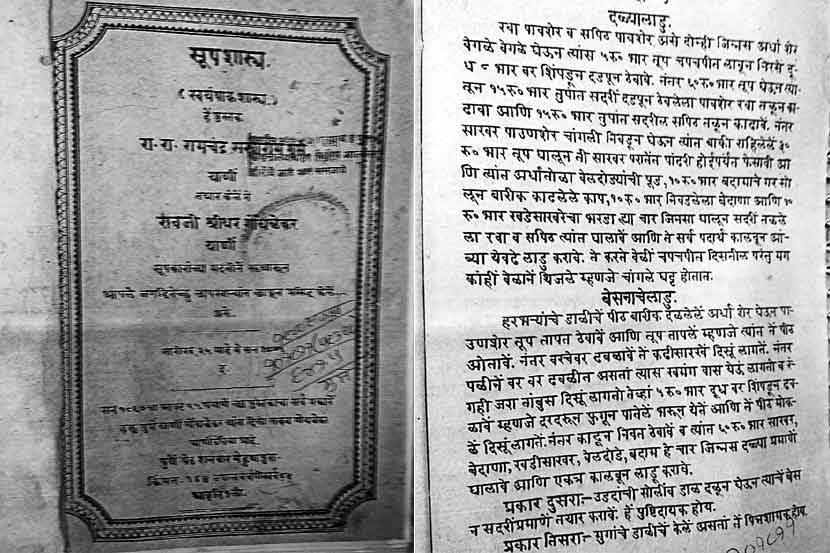 सूपशास्त्र.
(स्वयंपाकशास्त्र)
हें पुस्तक
रा. रा. रामचंद्र
याणीं
तयार केलें तें
रावजी श्रीधर गोंधळेकर
याणीं
आपले जगद्धितेच्छु छापखान्यांत छापून प्रसिद्ध केलें.
असे.
पुणें पेठ शनवार
किंमत
दळ्यालाडु.
रवा पावशेर व सपिठ पावशेर असे दोन्ही जिन्नस अर्धा शेर
वेगळे वेगळे घेऊन त्यांस ५रु० भार तूप चपचपीत लावून निरसें दू-
ध ८ भार वर शिंपडून दडपून ठेवावें. नंतर ६५रु० भार तूप घेऊन त्या-
तून १५रु० भार तुपांत सदरीं दडपून ठेवलेला पावशेर रवा तळून का-
ढावा आणि १५रु० भार तुपांत सदरील सपिठ तळून काढावें. नंतर
साखर पाउणशेर चांगली निवडून घेऊन त्यांत बाकी राहिलेलें ३५
रु० भार तूप घालून ती साखर परातेंत पांढरी होईपर्यंत फेसावी आ-
णि त्यांत अर्धातोळा वेलदोड्यांची पूड, १०रु० भार बदामाचे गर सो-
लून बारीक काढलेले काप, १०रु० भार निवडलेला बेदाणा आणि १०
रु० भार खडेसाखरेचा भरडा ह्या चार जिनसा घालून सदरीं तळले-
ला रवा व सपिठ त्यांत घालावें आणि ते सर्व पदार्थ कालवून आं-
ब्या येवढे लाडु करावे. ते करते वेळीं चपचपीत दिसतील परंतु मग
कांहीं वेळानें थिजले म्हणजे चांगले घट्ट होतात.
बेसनाचेलाडु.
हरभऱ्यांचे डाळीचें पीठ बारीक दळलेलें अर्धा शेर घेऊन पा-
उणशेर तूप तापत ठेवावें आणि तूप तापलें म्हणजे त्यांत तें पीठ
ओतावें. नंतर वरचेवर ढवळावें तें कढीसारखें दिसूं लागतें. नंतर
पळीनें वर वर ढवळीत असतां त्यास खमंग वास येऊं लागतो व रं-
गही जरा तांबुस दिसूं लागतो तेव्हां ५रु० भार दूध वर शिंपडून ढव-
ळावें म्हणजे दरदरून फुगून पातेलें भरून येतें आणि तें पीठ मोक-
ळें दिसूं लागतें. नंतर काढून निवत ठेवावें व त्यांत ६५रु० भार साखर,
बेदाणा, खडीसाखर, वेलदोडे, बदाम हे चार जिन्नस दळ्या प्रमाणें
घालावे आणि एकत्र कालवून लाडू करावे.
प्रकार दुसरा:– उडदांची सोलींव डाळ दळून घेऊन त्याचें बेस
न सदरींप्रमाणें तयार करावें. हें पुष्टिदायक होय.
प्रकार तिसरा:– मुगांचे डाळीचें केलें असतां तें पित्तशामक होय.